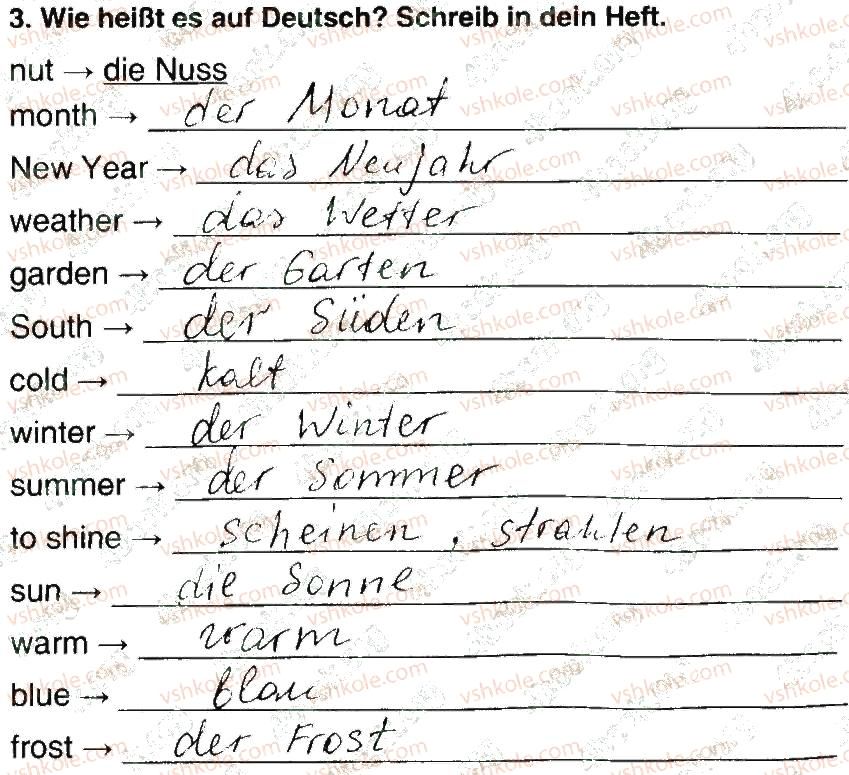 3. Wie heißt es auf Deutsch? Schreib in dein Heft.
nut → die Nuss
month → der Monat
New Year → das Neujahr
weather → das Wetter
garden → der Garten
South → der Süden
cold → kalt
winter → der Winter
summer → der Sommer
to shine → scheinen, strahlen
sun → die Sonne
warm → warm
blue → blau
frost → der Frost
vshkole.com